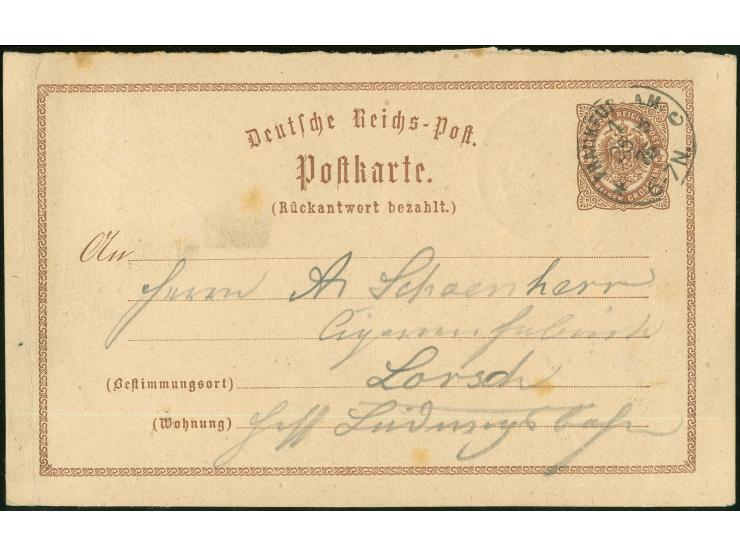 Deutsche Reichs-Post.
Postkarte.
(Rückantwort bezahlt.)
An
Herrn A Schoenherr
Cigarrenfabrik
(Bestimmungsort) Lorsch
(Wohnung) Hess Ludwigs Bahn